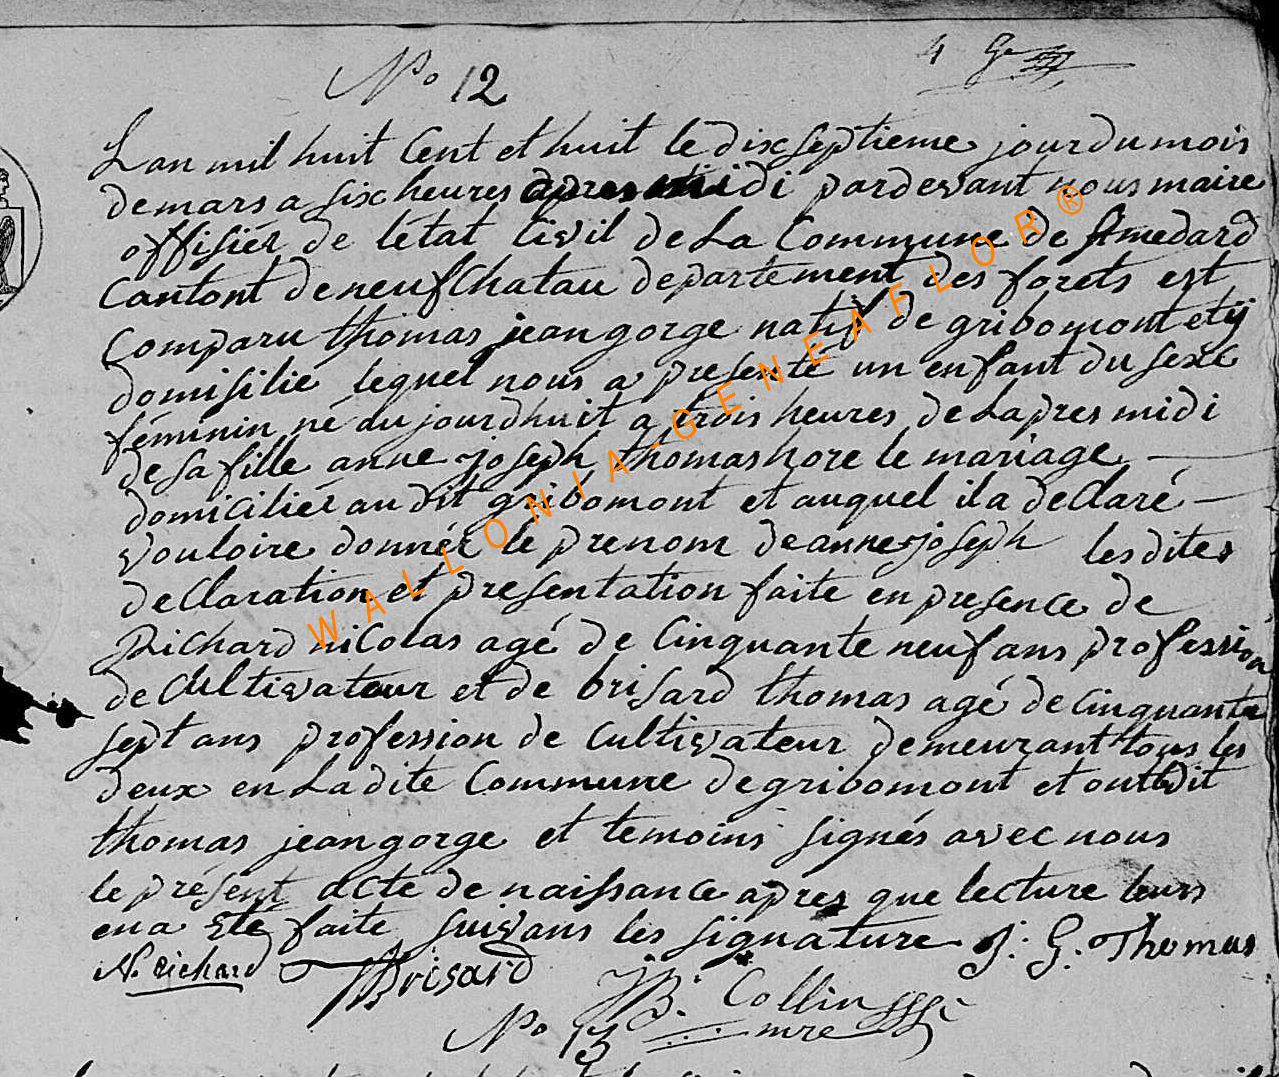 4 G
No 12
Lan mil huit Cent et huit le dix septieme jour du mois
de mars a six heures apres midi pardevant nous maire
offisiér de létat Civil de La Commune de st medard
Cantont de neufchatau departement des forets est
Comparu thomas jean gorge natif de gribomont et ÿ
domisilié lequel nous a presenté un enfant du sexe
féminin né du jourdhuit a trois heures de Lapres midi
de sa fille anne joseph thomas hore le mariage
domiciliér au dit gribomont et auquel il a declaré
vouloire donnér le prenom de anne joseph les dites
declaration et presentation faite en presence de
Richard nicolas agé de Cinquante neuf ans profession
de Cultivateur et de brisard thomas agé de Cinquante
sept ans profession de Cultivateur demeurant tous les
deux en La dite Commune de gribomont et ont ledit
thomas jean gorge et temoins signés avec nous
le présent acte de naissance apres que lecture leurs
en a Eté faite suivans les signature J. G. Thomas
N. Richard Brisard
JB. Collin
mre
No 13
WALLONIA-GENEAFLOR®